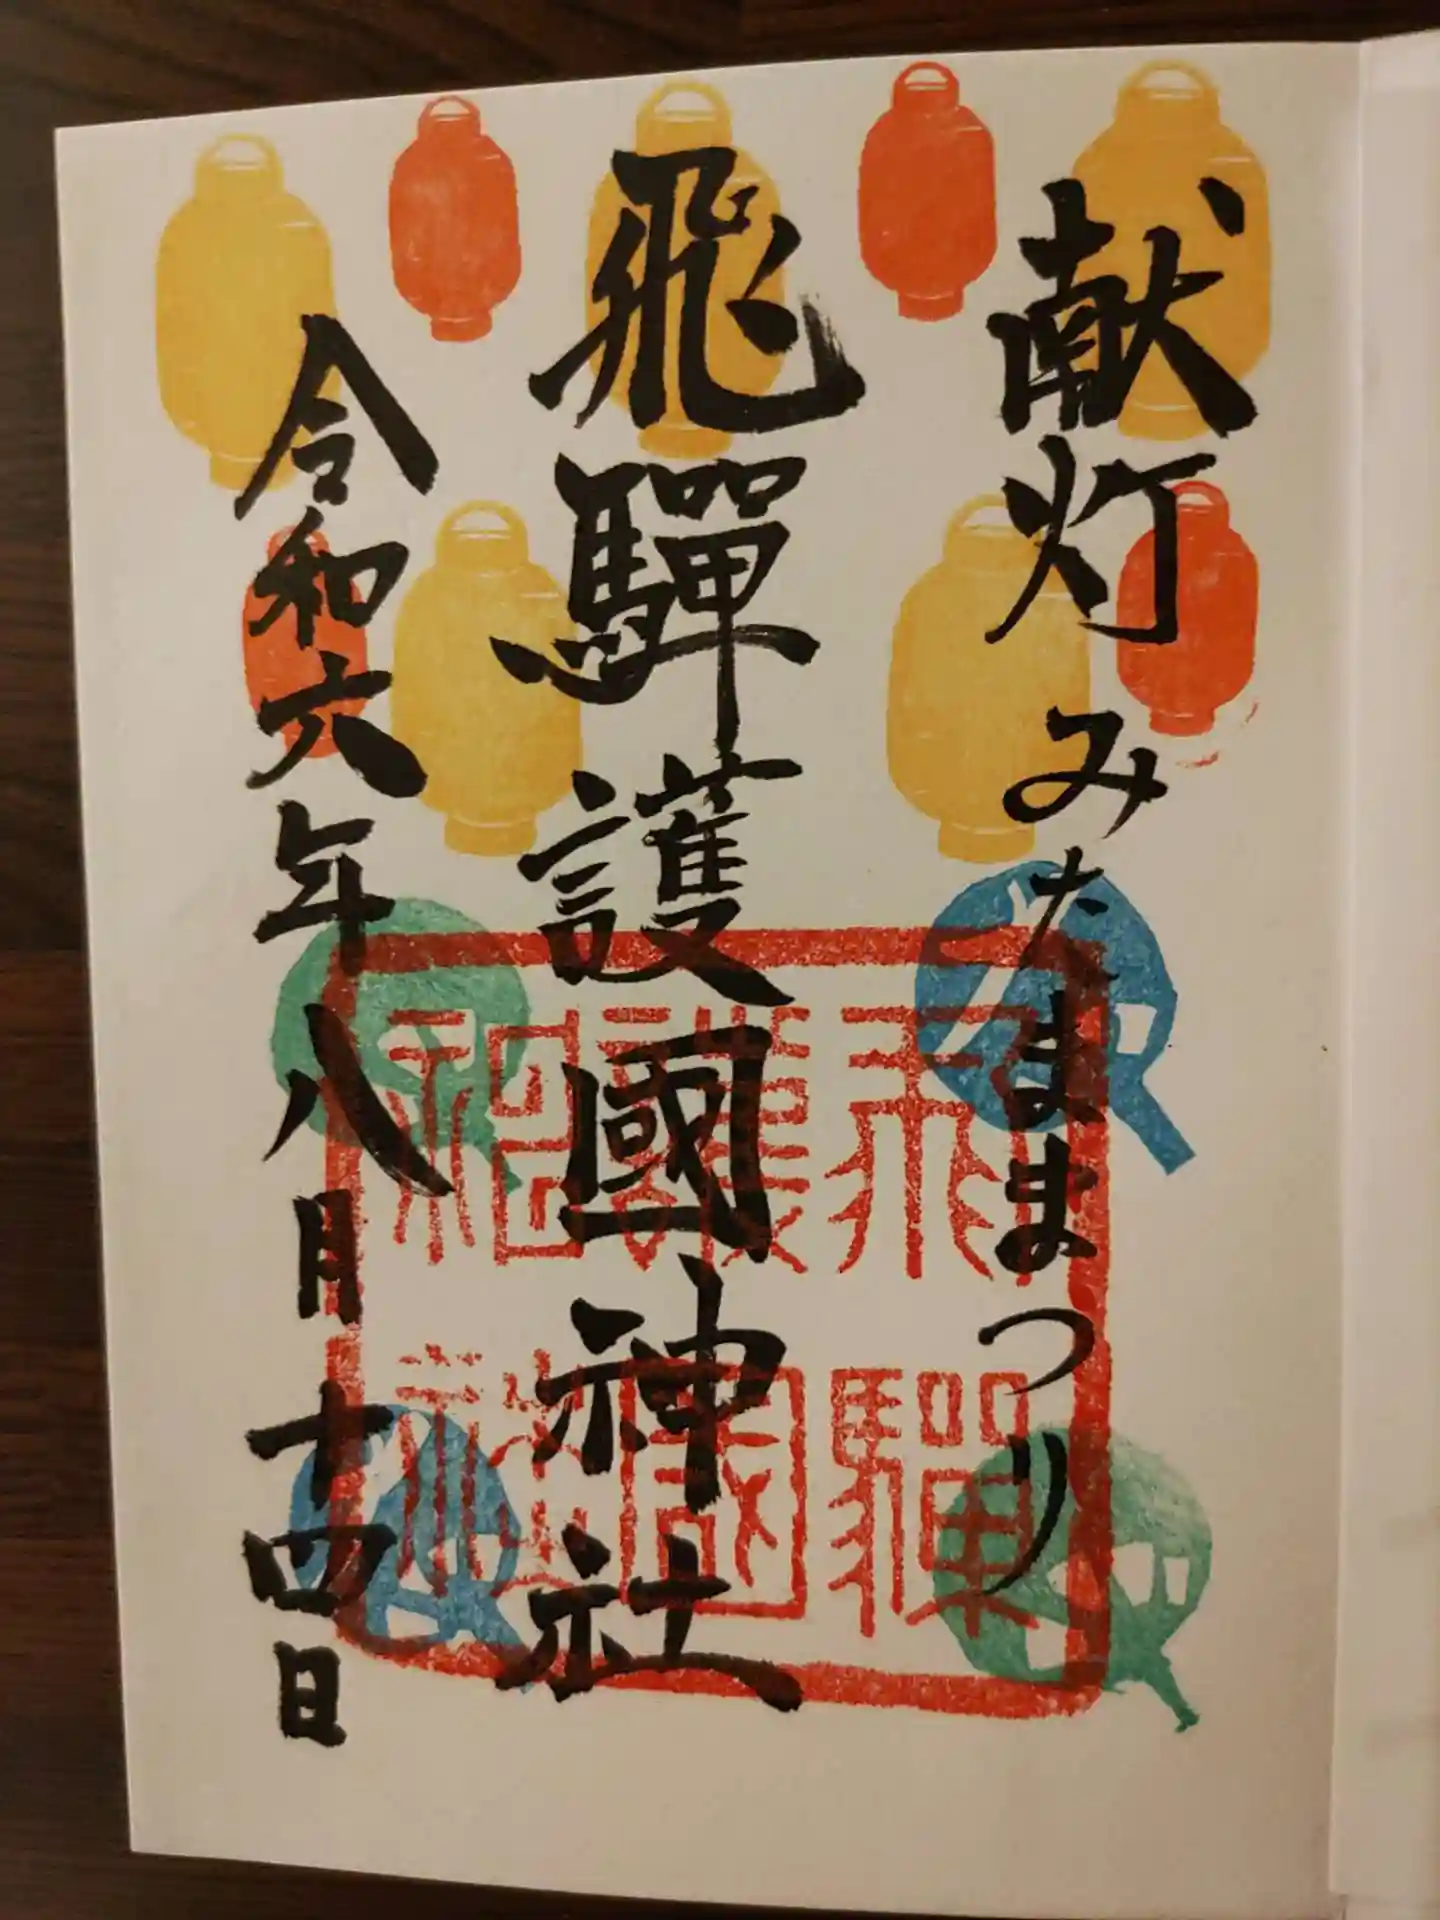 献灯 みたままつり
飛驒護國神社
令和六年八月十四日
飛驒
護國